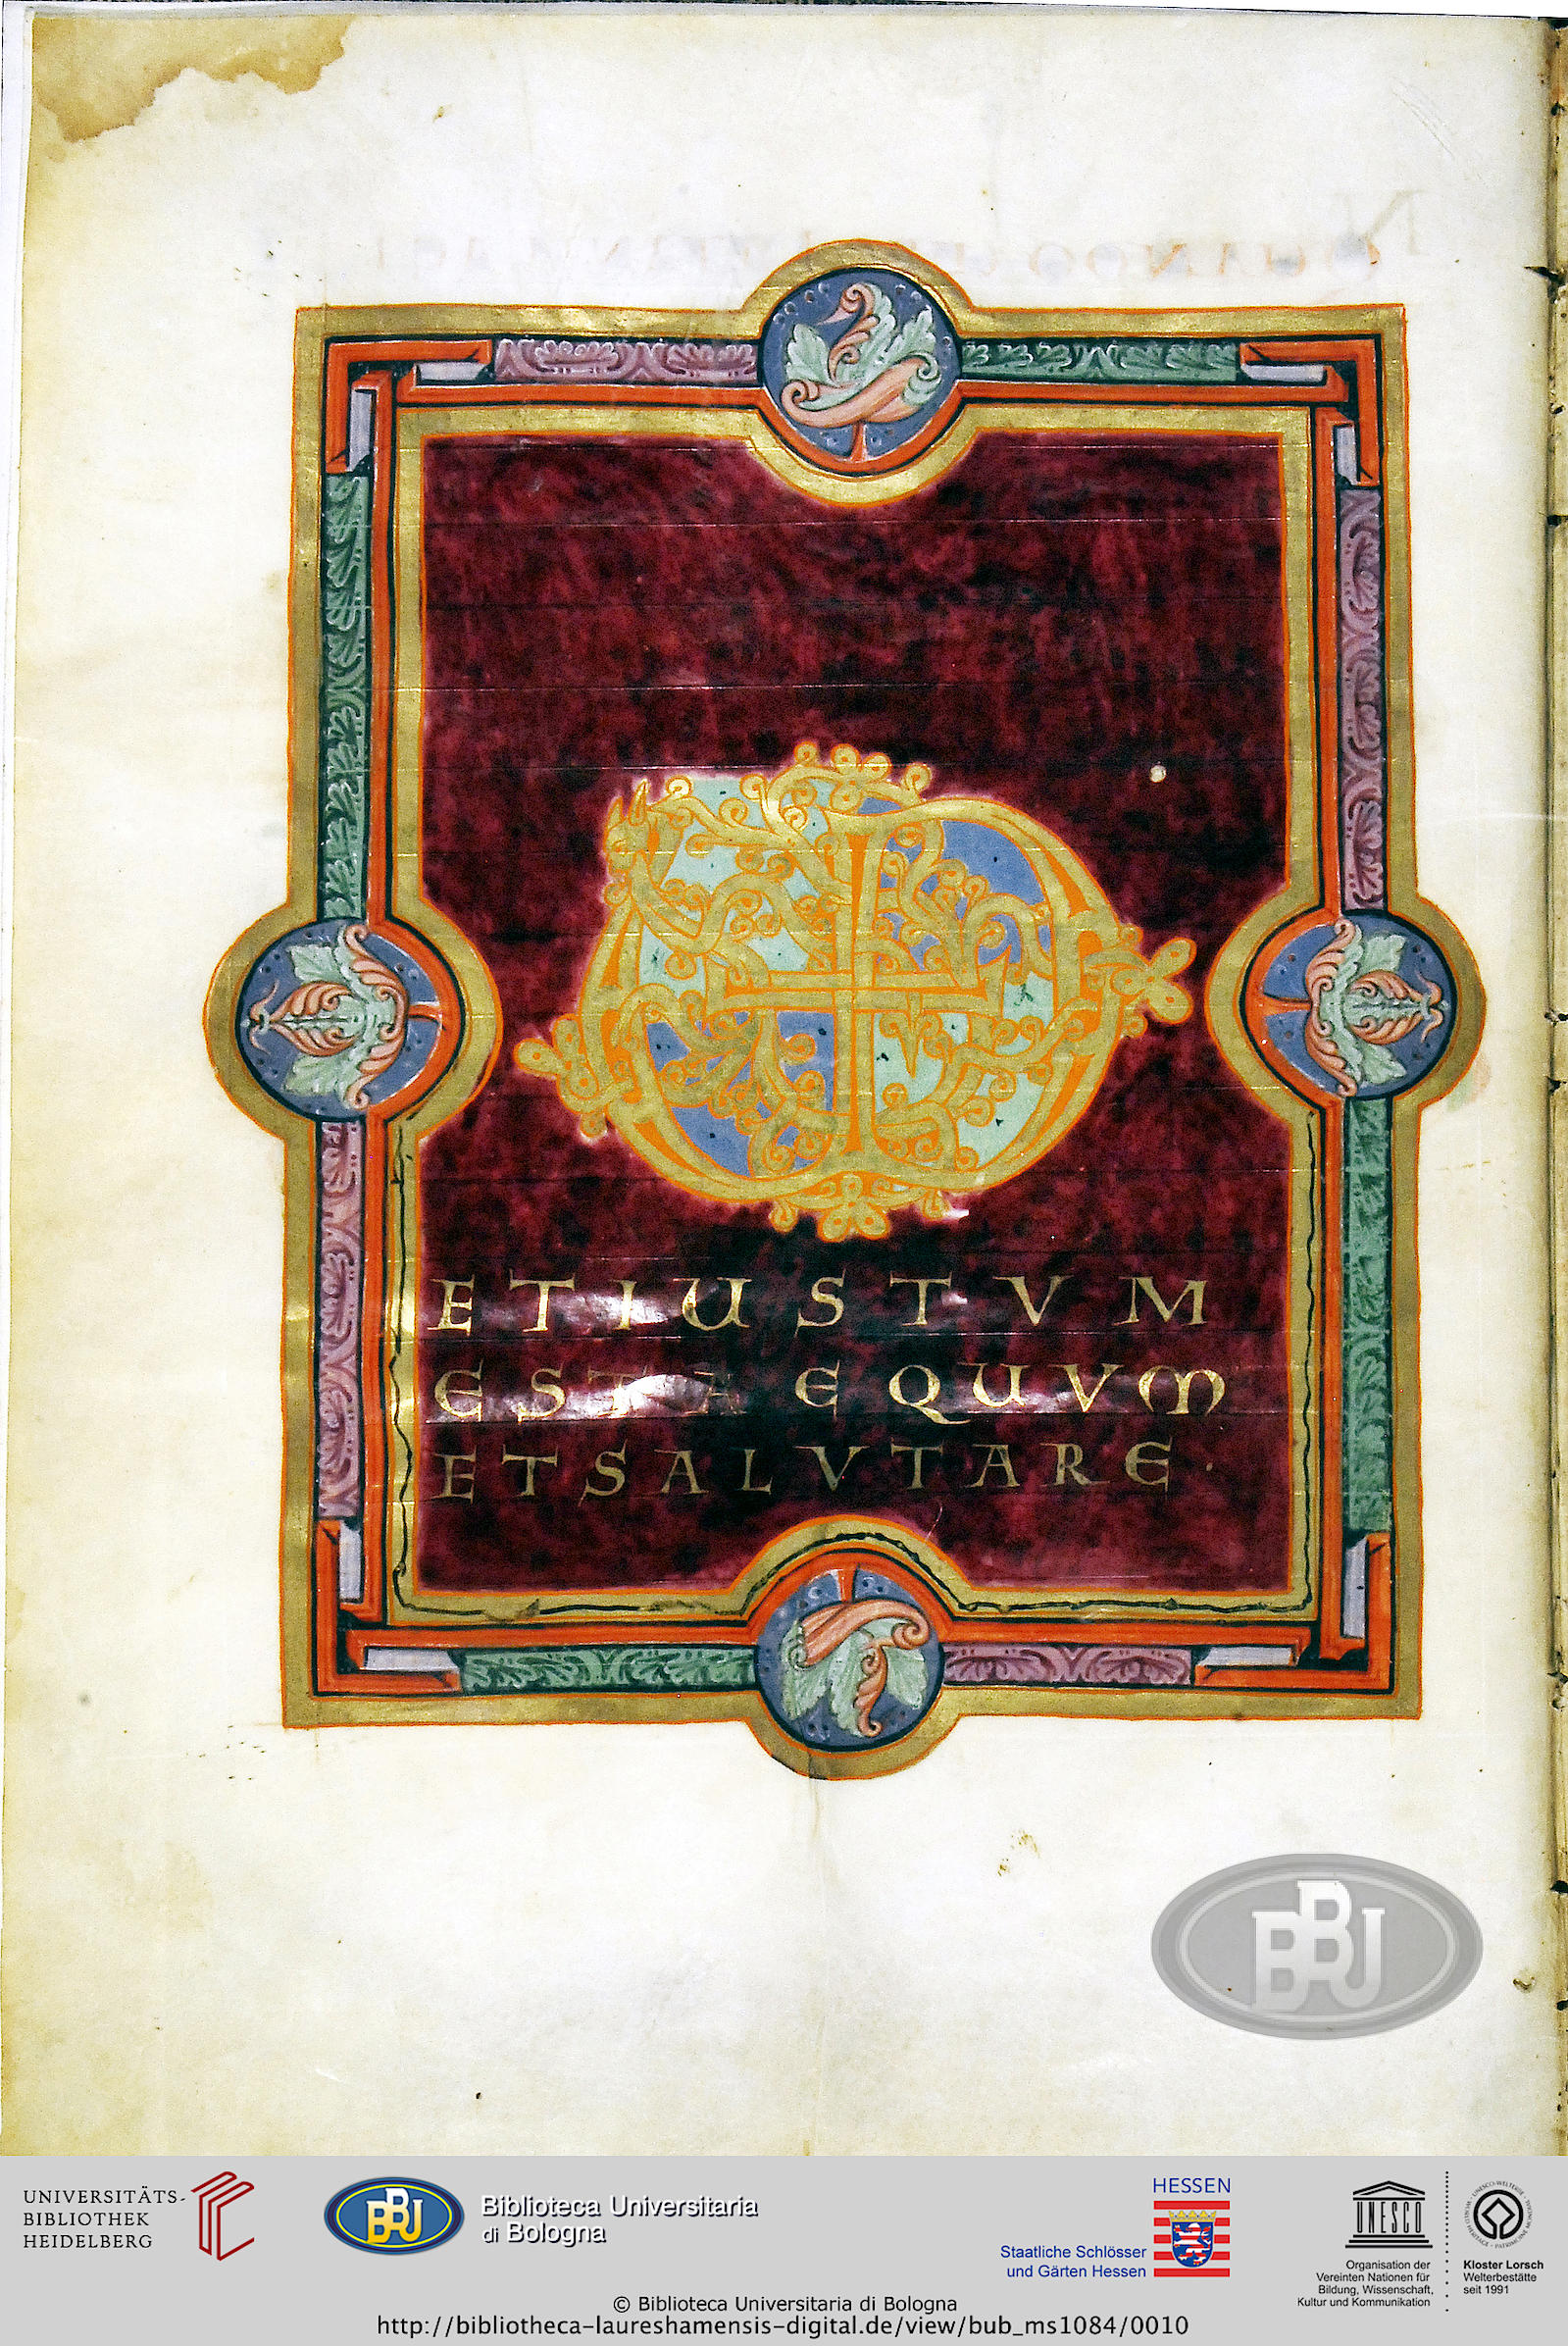 ETIUSTVM
ESTAEQUVM
ETSALVTARE·
BBU
UNIVERSITÄTS-
BIBLIOTHEK
HEIDELBERG
BBU
Biblioteca Universitaria
di Bologna
HESSEN
Staatliche Schlösser
und Gärten Hessen
UNESCO
Organisation der
Vereinten Nationen für
Bildung, Wissenschaft,
Kultur und Kommunikation
Kloster Lorsch
Welterbestätte
seit 1991
© Biblioteca Universitaria di Bologna
http://bibliotheca-laureshamensis-digital.de/view/bub_ms1084/0010